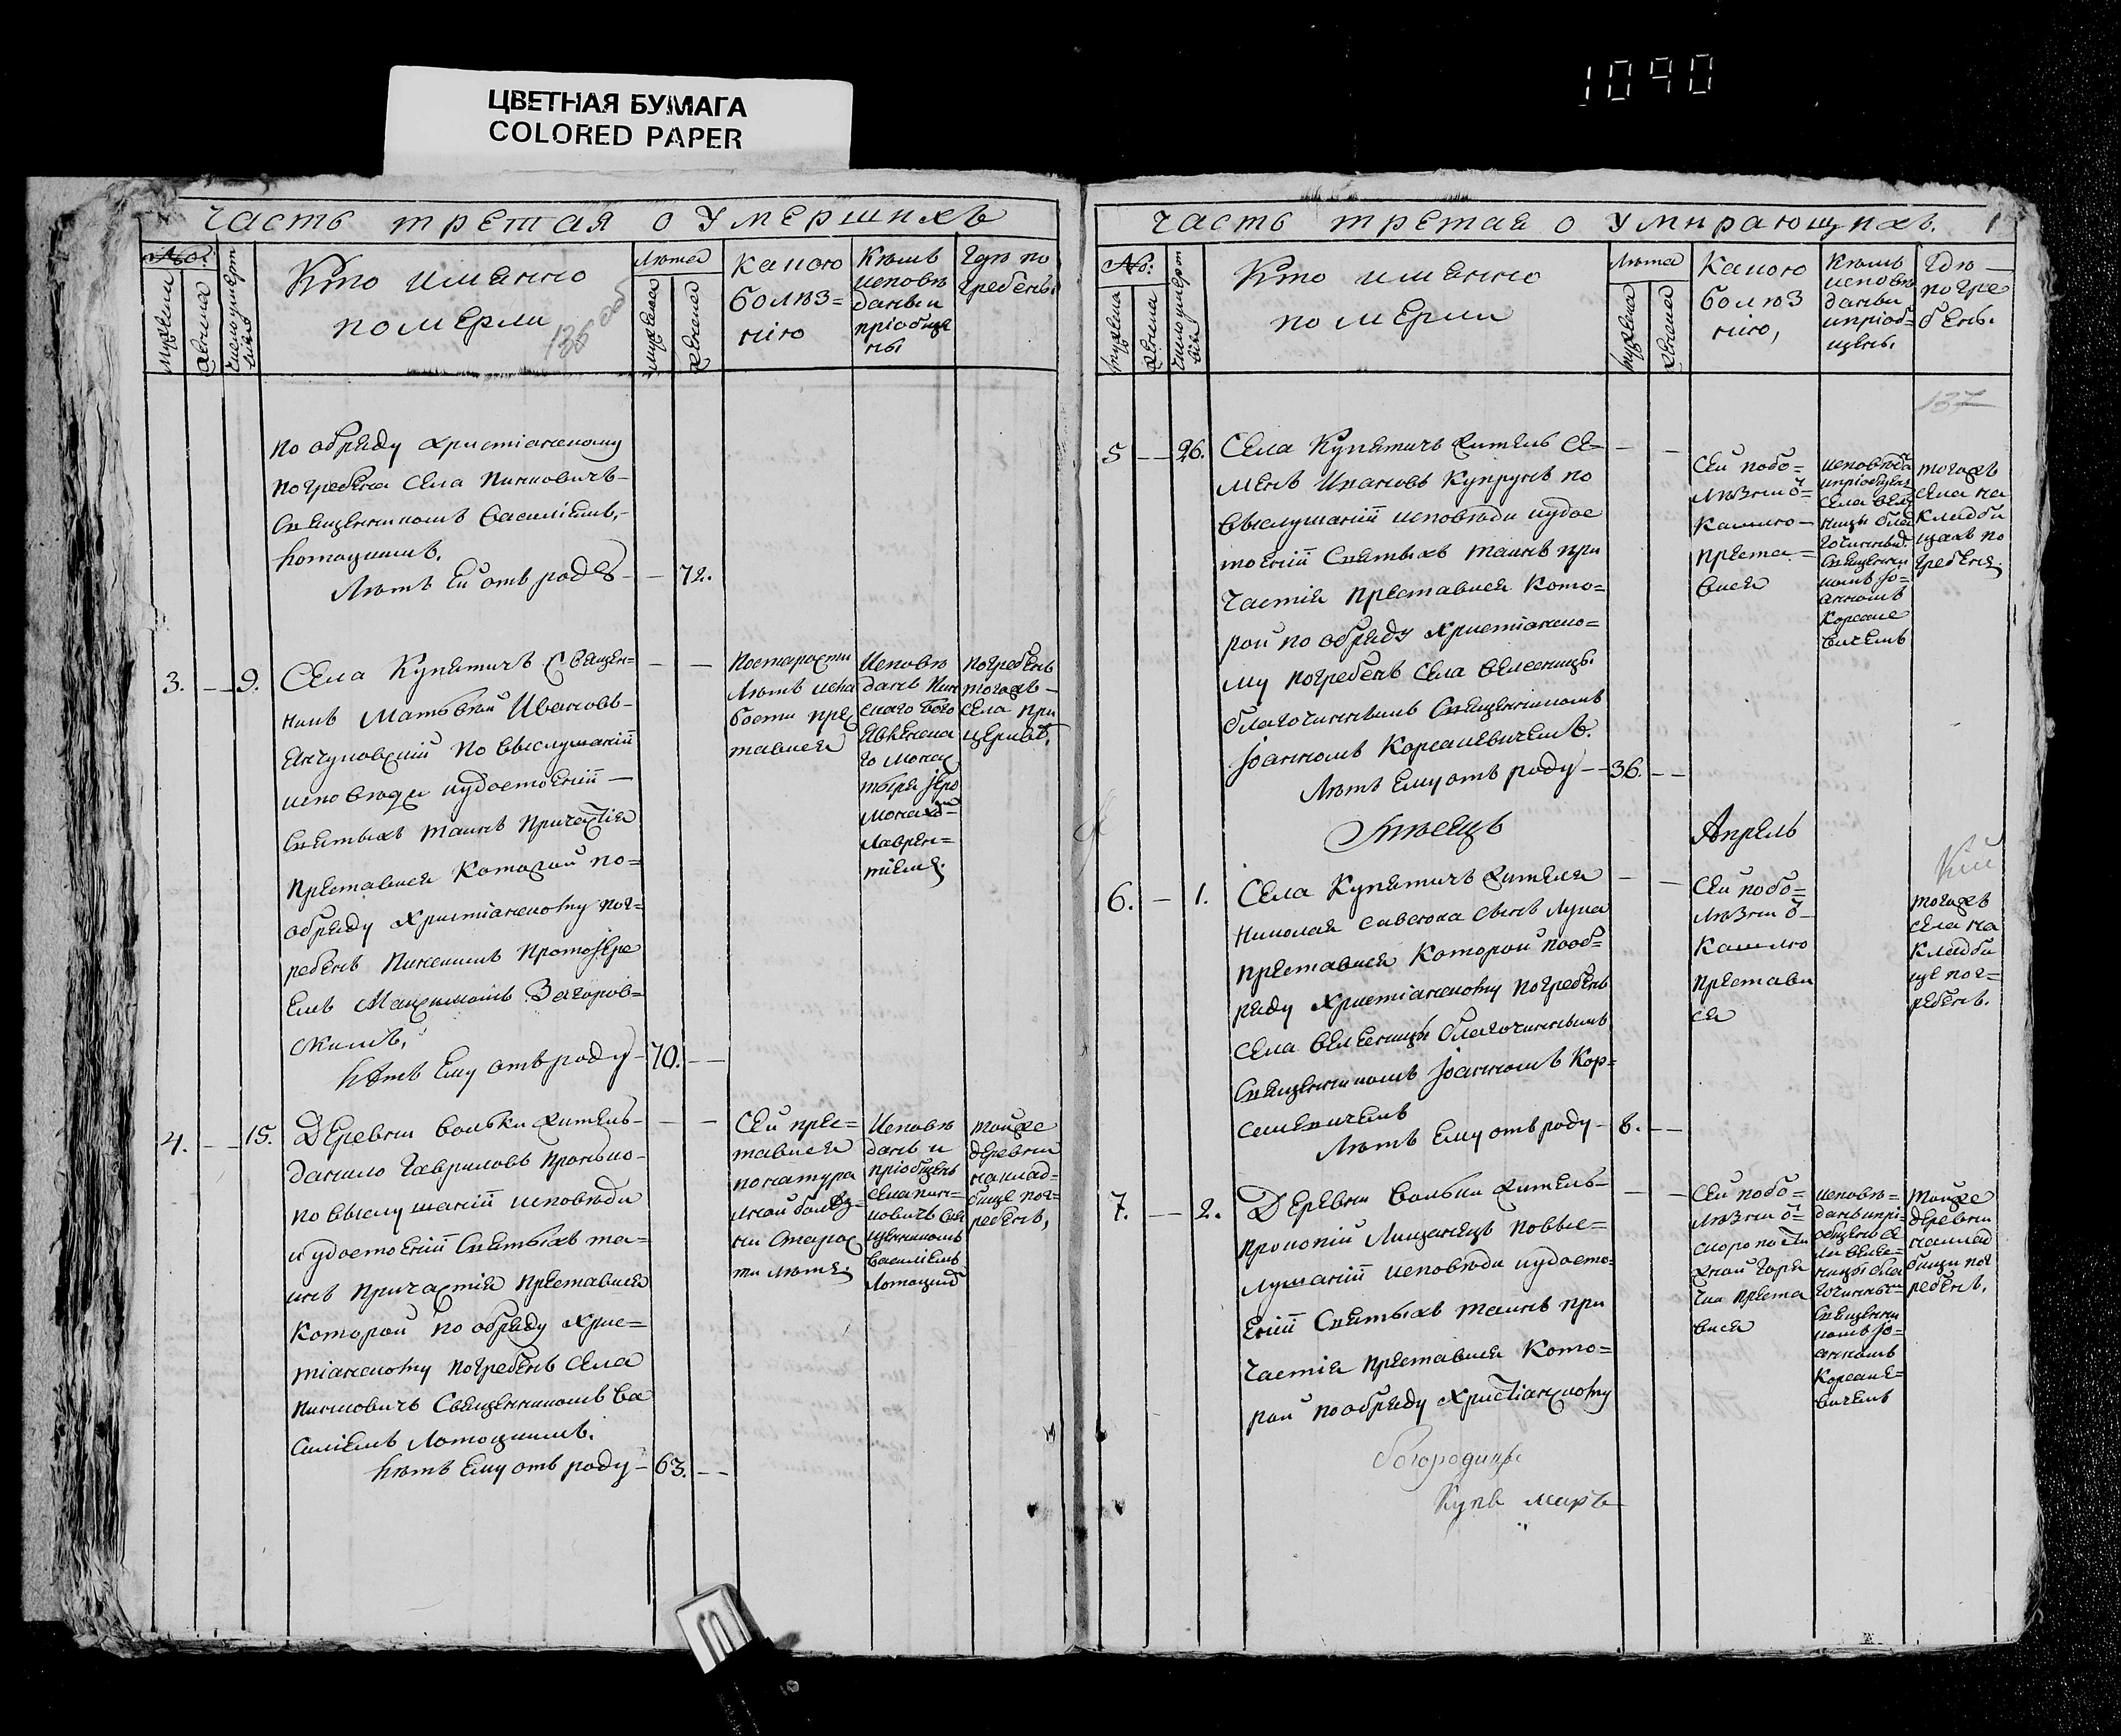 ЦВЕТНАЯ БУМАГА
COLORED PAPER
1090
Часть третая о Умершихъ
№:
мужеска
женска
число умерт
Кто именно
померли
136 об
Лѣта
мужеска
женска
Какою
болѣз=
нiю
Кѣмъ
исповѣ
даны и
прiобще
ны
Гдѣ по
гребены
по обряду христiанскому
погребена Села Пинковичъ
Священникомъ Василiемъ
Лѣтъ Ей отъ роду — 72.
3. — 9.
Села Купятичъ Священ=
никъ Матвѣй Ивановъ
по выслушанiи
исповѣди иудостоенiи
Святыхъ таинъ Причастiя
преставися Которой по=
обряду Христiанскому пог=
ребенъ Пинскимъ Протоiере
емъ Максимомъ Загоров=
скимъ.
Лѣтъ Ему отъ роду — 70.
Постарости
лѣтъ исла
бости прес
тавися
Исповѣ
данъ Пин
скаго Бого
явленска
го Монас
тыря Iеро
монахом
Лаврен=
тiемъ.
погребенъ
тогожъ
села при
церквѣ.
4. — 15.
Деревни Вольки житель
Данило Гавриловъ
по выслушанiи исповѣди
и удостоенiи Святыхъ та=
инъ Причастiя преставися
Которой по обряду хрис=
тiанскому погребенъ Села
Пинковичъ Священникомъ Ва
силiемъ Лотоцкимъ.
Лѣтъ Ему отъ роду — 63.
Сей прес=
тавися
понатура
лной болѣз=
ни старос
ти лѣтъ.
Исповѣ
данъ и
прiобщенъ
села Пин=
ковичъ Свя
щенникомъ
Василiемъ
Лотоцкимъ
тойже
деревни
наклад=
бище пог=
ребенъ,
Часть третая о умирающихъ.
№:
мужеска
женска
число умерт
Кто именно
померли
Лѣта
мужеска
женска
Какою
болѣз
нiю,
Кѣмъ
исповѣ
даны
иприоб=
щены.
Гдѣ
погре
бены.
137
5 — 26.
Села Купятичъ житель Се=
менъ Ивановъ Купрунъ по
выслушанiи исповѣди иудос
тоенiи Святыхъ таинъ при
частiя преставися Кото=
рой по обряду христiанско=
му погребенъ села Велесницы
благочиннымъ Священникомъ
Iоанномъ Корсакевичемъ.
Лѣтъ Ему отъ роду — 36.
Сей побо=
лѣзни ѿ
кашлю
преста=
вися
исповѣда
иприобщенъ
села Веле
сницы благ
очинным
Священни
комъ Iо=
анномъ
Корсаке
вичемъ
тогожъ
села на
кладби
щахъ по
гребенъ.
Мѣсецъ
Апрель
6. — 1.
Села Купятичъ жителя
Николая Савенка сынъ Лука
преставися Которой пооб=
ряду христiанскому погребенъ
села Велесницы благочиннымъ
Священникомъ Iоанномъ Кор=
сакевичемъ
Лѣтъ Ему отъ роду — 6.
Сей побо=
лѣзни ѿ
кашлю
престави
ся
тогожъ
села на
кладби
ще пог=
ребенъ.
7. — 2.
Деревни Вольки житель
Прокопiй Лищенецъ повыс=
лушанiи исповѣди иудосто=
енiи Святыхъ таинъ при
частiя преставися Кото=
рой пообряду Христiанскому
Сей побо=
лѣзни ѿ
скоропости
жной горя
чки преста
вися
исповѣ=
данъ ипрi=
общенъ се
ла Велес=
ницы бла
гочинным
Священни
комъ Iо=
анномъ
Корсаке=
вичемъ
тойже
деревни
наклад
бищи пог
ребенъ.